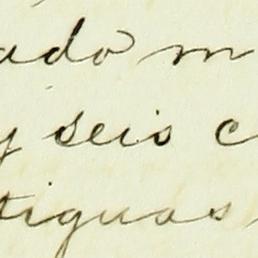 ado m
y seis c
tiguas